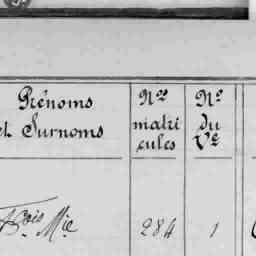 Prénoms
et Surnoms
Nos
matri
cules
No
du
Ve
fçois Mie
284
1